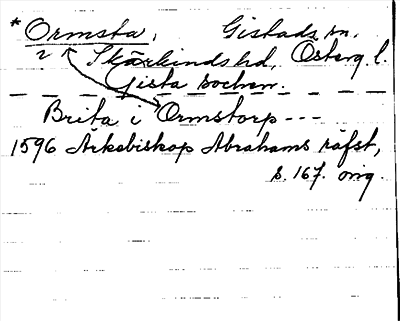 * Ormsta, Gistads sn,
i Skärkinds hd, Österg. l.
Gista socken.
Brita i Ormstorp ---
1596 Ärkebiskop Abrahams räfst,
s. 167. orig.